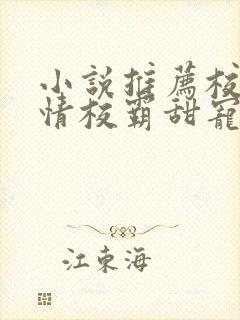 小說推薦校
情校霸甜寵
江東海